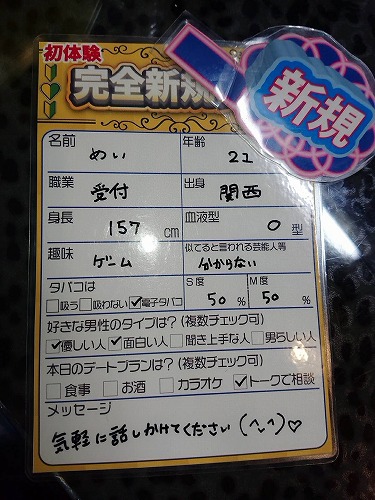 初体験
完全新規
新規
名前 めい 年齢 21
職業 受付 出身 関西
身長 157 cm 血液型 O 型
趣味 ゲーム 似てると言われる芸能人等 分からない
タバコは S度 M度
□吸う □吸わない ☑電子タバコ 50 % 50 %
好きな男性のタイプは?(複数チェック可)
☑優しい人 ☑面白い人 □聞き上手な人 □男らしい人
本日のデートプランは?(複数チェック可)
□食事 □お酒 □カラオケ ☑トークで相談
メッセージ
気軽に話しかけてください (^ᴗ^)♡